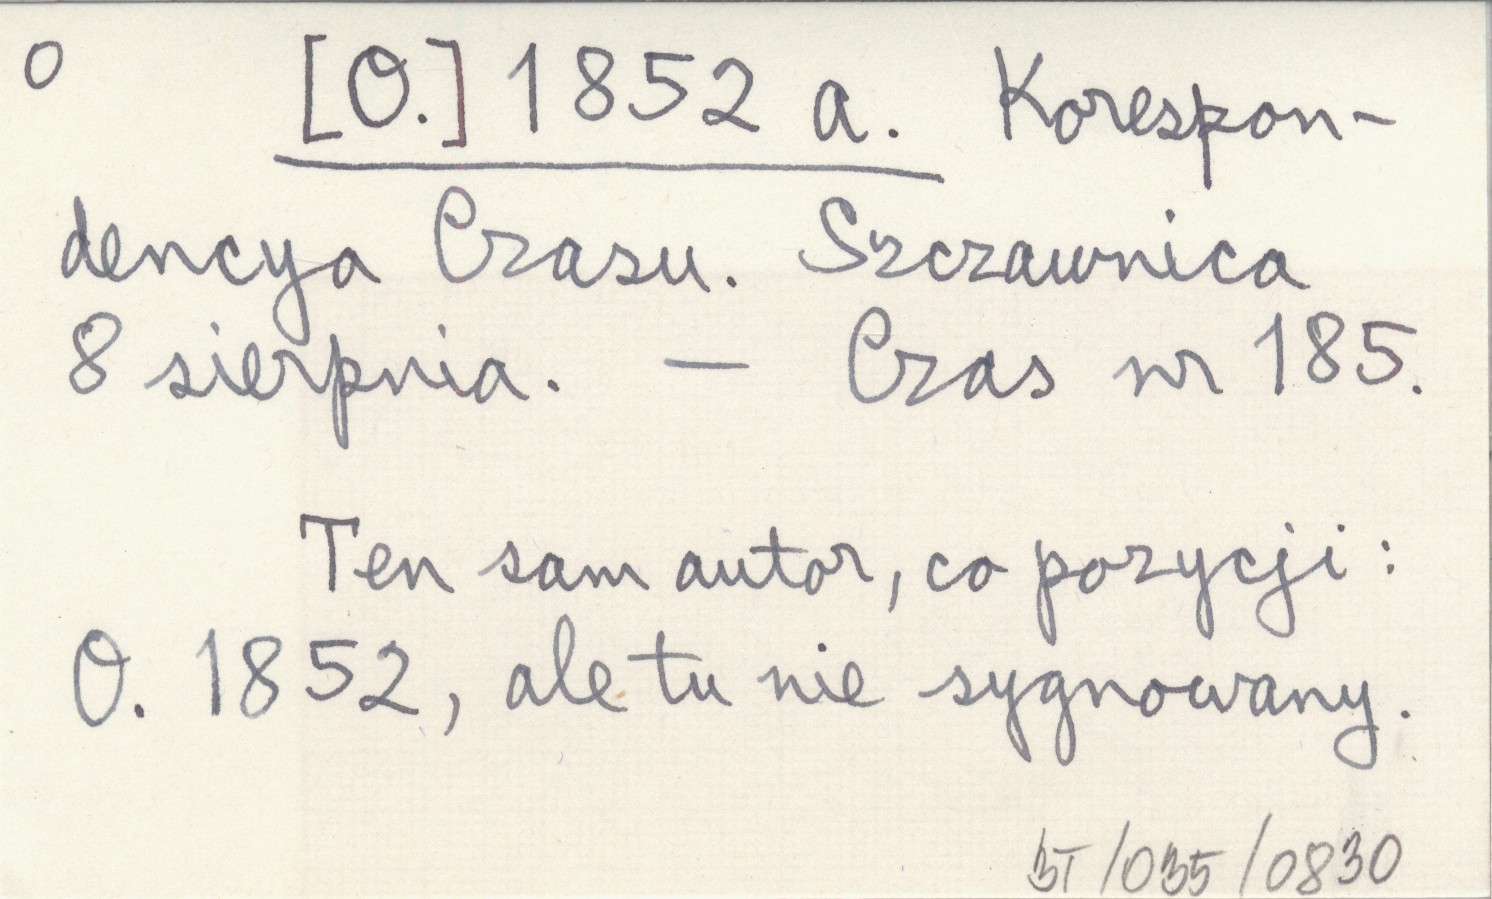 O [O.] 1852 a. Korespon-
dencya Czasu. Szczawnica
8 sierpnia. — Czas nr 185.
Ten sam autor, co pozycji:
O. 1852, ale tu nie sygnowany.
BT/035/0830